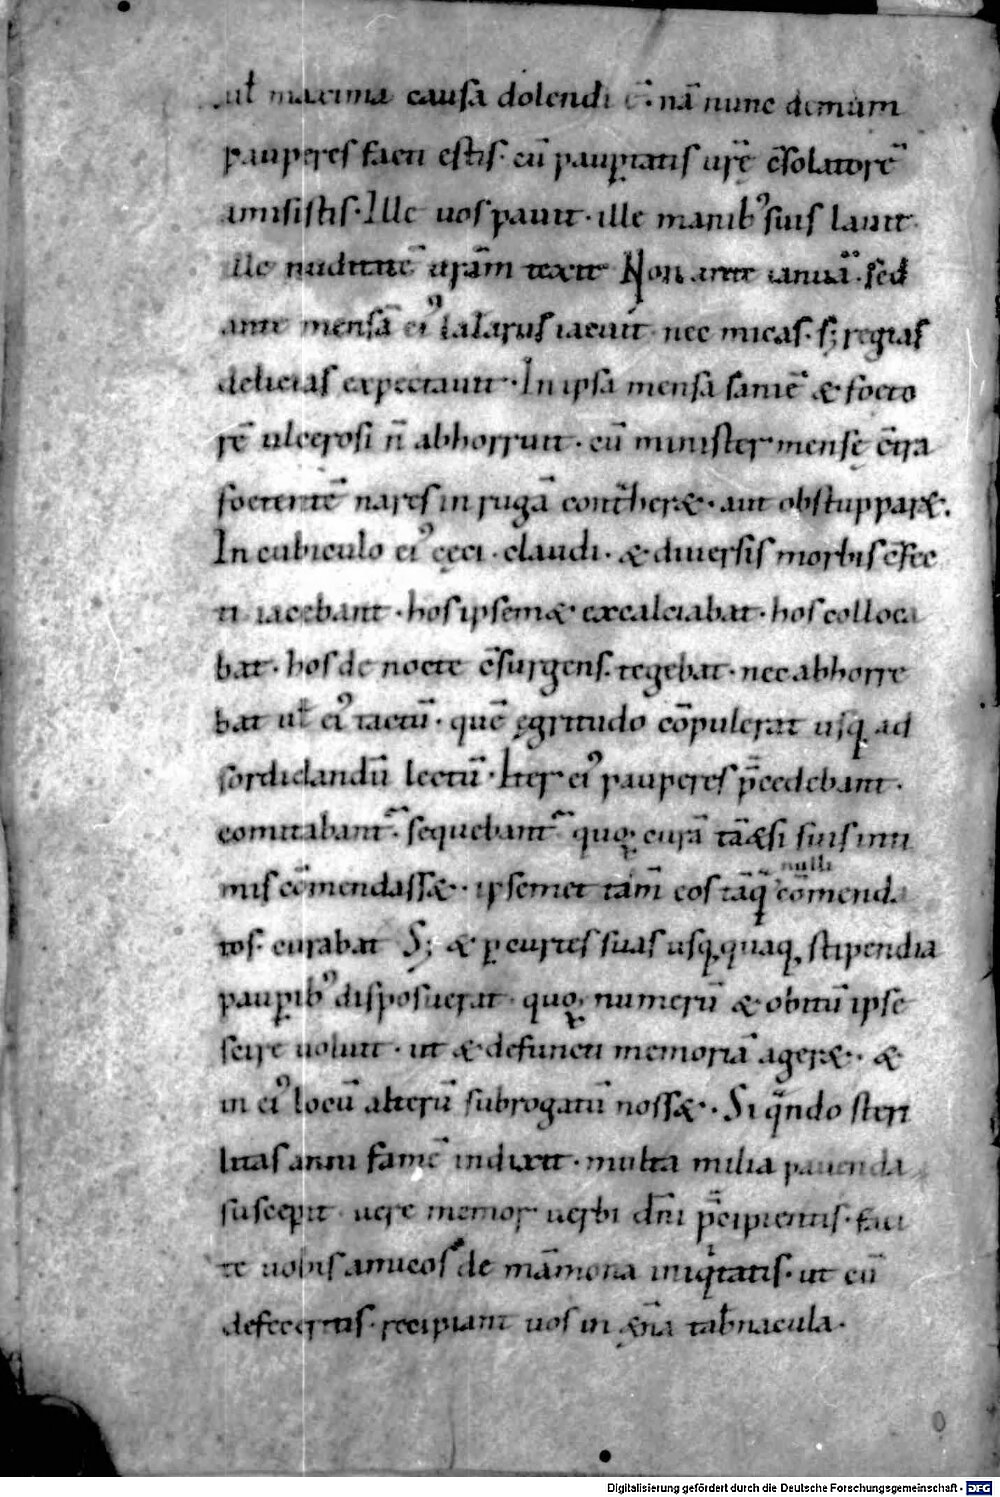 ul̄ maxima causa dolendi ē· nā nunc demum
pauperes facti estis· cū paup̱tatis ur̄ę c̄solatorē
amisistis· Ille uos pauit· ille manibꝰ suis lauit·
ille nuditatē ur̄am texit· Non ante ianuā· sed
ante mensā eiꝰ lazarus iacuit· nec micas· sꝫ regias
delicias expectauit· In ipsa mensa saniē & foeto
rē ulcerosi n̄ abhorruit· cū minister mensę c̄tra
foetentē nares in rugā cont̄her&· aut obstuppar&·
In cubiculo eiꝰ cęci· claudi· & diuersis morbis c̄fec
ti iacebant· hos ipsem& excalciabat· hos colloca
bat· hos de nocte c̄surgens· tegebat· nec abhorre
bat ul̄ eiꝰ tactū· quē ęgritudo cōpulerat usq; ad
sordidandū lectū· Iter eiꝰ pauperes p̄cedebant·
comitabant̄· sequebant̄· quoꝝ curā tā&si suis inti
mis cōmendass&· ipsemet tām eos tāq̄ nulli cōmenda
tos· curabat Sꝫ & ꝑ curtes suas usq;quaq; stipendia
pauꝑibꝰ disposuerat· quoꝝ numerū & obitū ipse
scire uoluit· ut & defuncti memoriā ager&· &
in eiꝰ locū alterū subrogatū noss&· Si q̄ndo steri
litas anni famē indixit· multa milia pauenda
suscepit· uere memor uerbi dn̄i p̄cipientis· faci
te uobis amicos de māmona iniqͥtatis· ut cū
defeceritis· recipiant uos in ę&̄na tab̄nacula·
Digitalisierung gefördert durch die Deutsche Forschungsgemeinschaft - DFG